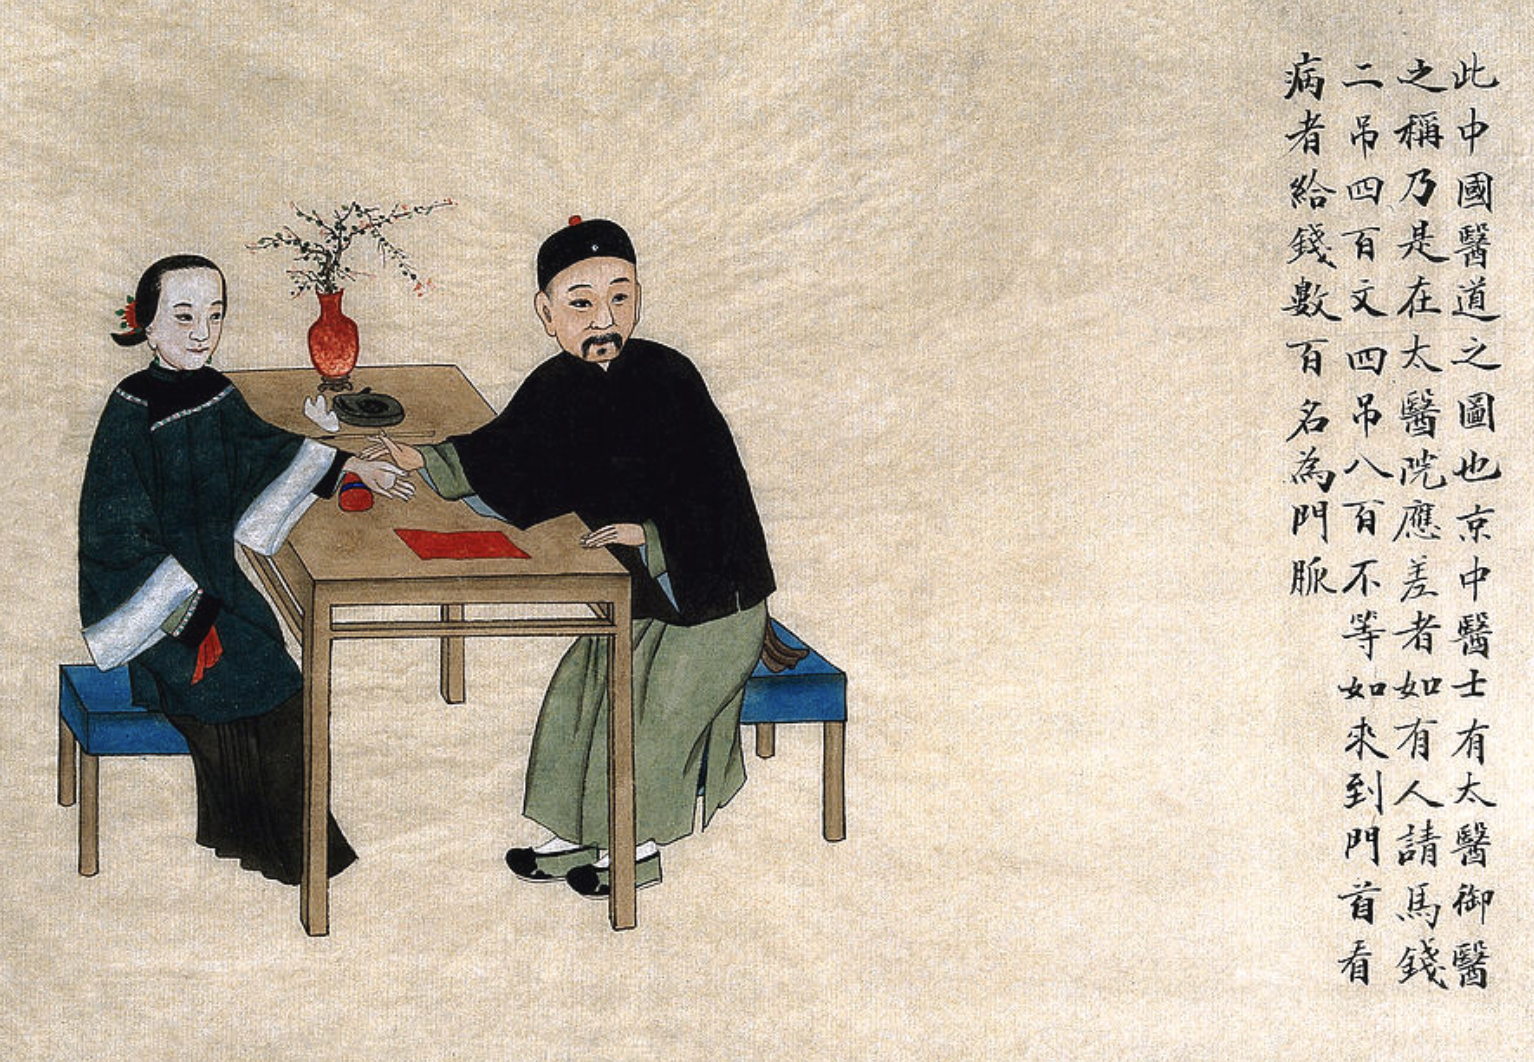 此中國醫道之圖也京中醫士有太醫御醫
之稱乃是在太醫院應差者如有人請馬錢
二吊四百文四吊八百不等如來到門首看
病者給錢數百名為門脈